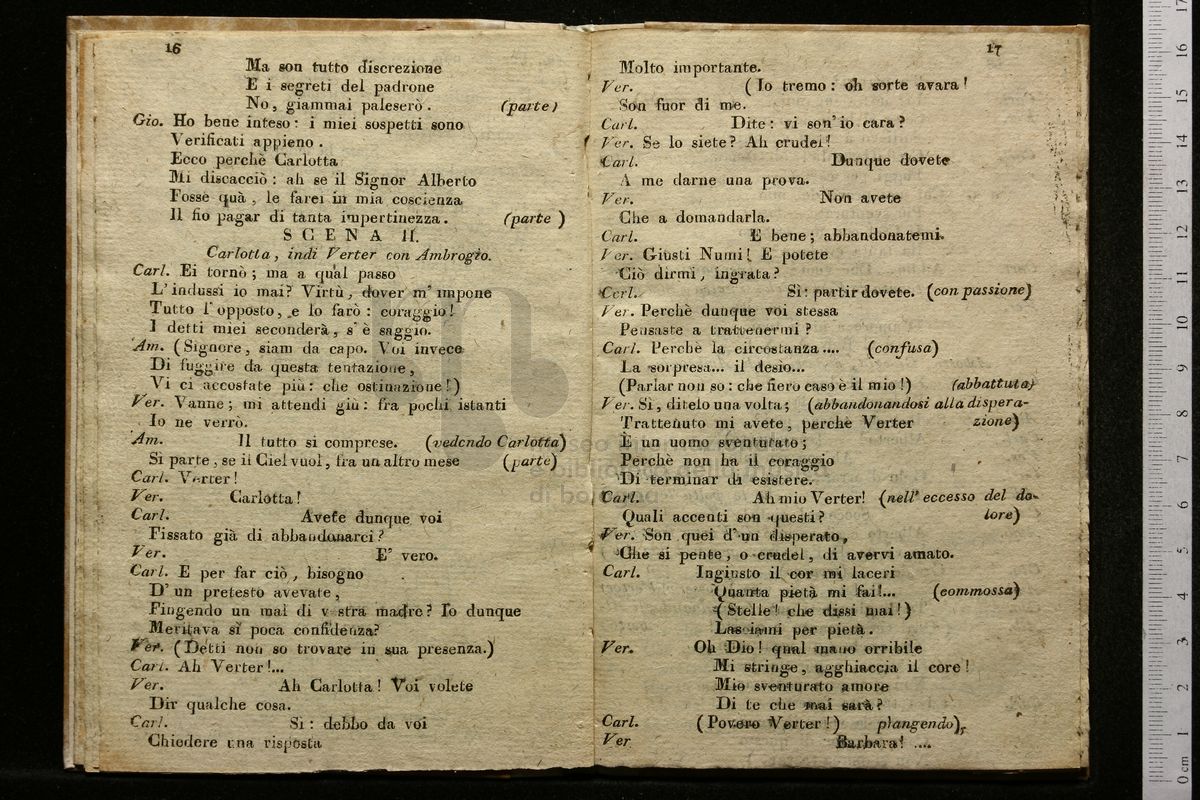 16
Ma son tutto discrezione
E i segreti del padrone
No, giammai paleserò. (parte)
Gio. Ho bene inteso: i miei sospetti sono
Verificati appieno.
Ecco perchè Carlotta
Mi discacciò: ah se il Signor Alberto
Fosse quà, le farei in mia coscienza
Il fio pagar di tanta impertinezza. (parte)
SCENA II.
Carlotta, indi Verter con Ambrogio.
Carl. Ei tornò; ma a qual passo
L'indussi io mai? Virtù, dover m'impone
Tutto l'opposto, e lo farò: coraggio!
I detti miei seconderà, s'è saggio.
Am. (Signore, siam da capo. Voi invece
Di fuggire da questa tentazione,
Vi ci accostate più: che ostinazione!)
Ver. Vanne; mi attendi giù: fra pochi istanti
Io ne verrò.
Am. Il tutto si comprese. (vedendo Carlotta)
Si parte, se il Ciel vuol, fra un altro mese (parte)
Carl. Verter!
Ver. Carlotta!
Carl. Avete dunque voi
Fissato già di abbandonarci?
Ver. E' vero.
Carl. E per far ciò, bisogno
D'un pretesto avevate,
Fingendo un mal di vostra madre? Io dunque
Meritava sì poca confidenza?
Ver. (Detti non so trovare in sua presenza.)
Carl. Ah Verter!...
Ver. Ah Carlotta! Voi volete
Dir qualche cosa.
Carl. Si: debbo da voi
Chiedere una risposta
17
Molto importante.
Ver. (Io tremo: oh sorte avara!
Son fuor di me.
Carl. Dite: vi son'io cara?
Ver. Se lo siete? Ah crudel!
Carl. Dunque dovete
A me darne una prova.
Ver. Non avete
Che a domandarla.
Carl. E bene; abbandonatemi.
Ver. Giusti Numi! E potete
Ciò dirmi, ingrata?
Carl. Sì: partir dovete. (con passione)
Ver. Perchè dunque voi stessa
Pensaste a trattenermi?
Carl. Perchè la circostanza.... (confusa)
La sorpresa... il desio...
(Parlar non so: che fiero caso è il mio!) (abbattuta)
Ver. Si, ditelo una volta; (abbandonandosi alla dispera-
Trattenuto mi avete, perchè Verter zione)
È un uomo sventurato;
Perchè non ha il coraggio
Di terminar di esistere.
Carl. Ah mio Verter! (nell'eccesso del do-
Quali accenti son questi? lore)
Ver. Son quei d'un disperato,
Che si pente, o crudel, di avervi amato.
Carl. Ingiusto il cor mi laceri
Quanta pietà mi fai!... (commossa)
(Stelle! che dissi mai!)
Lasciami per pietà.
Ver. Oh Dio! qual mano orribile
Mi stringe, agghiaccia il core!
Mio sventurato amore
Di te che mai sarà?
Carl. (Povero Verter!) piangendo),
Ver Barbara! ....